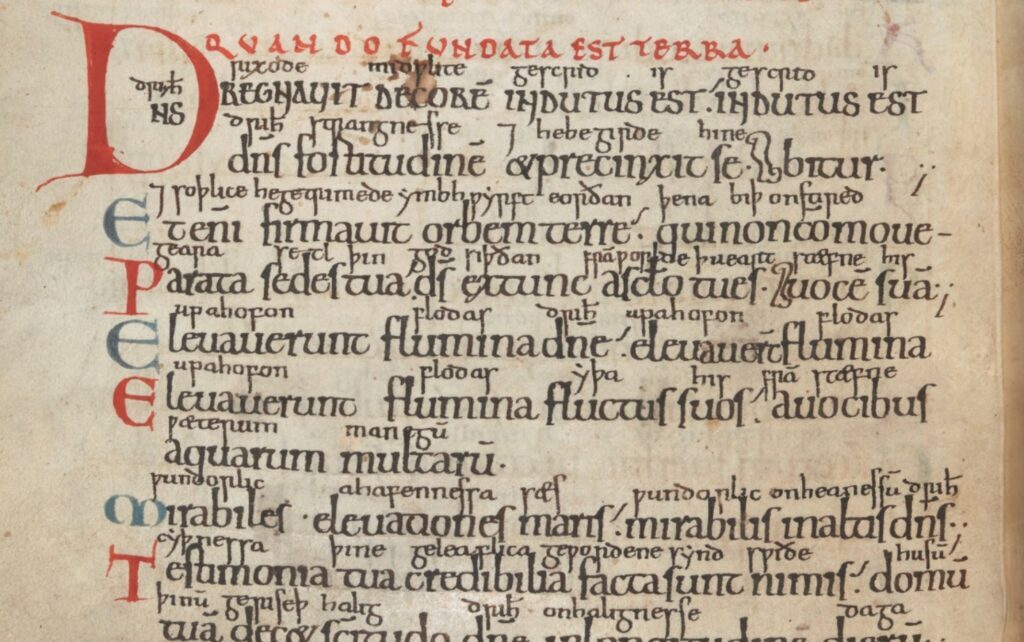 QUANDO FUNDATA EST TERRA·
rixode midƿlite gescrid is gescrid is
driht
DN̄S REGNAVIT DECORĒ INDUTUS EST· INDUTUS EST
driht strangnesse ⁊ hebegirde hine
dn̄s fortitudinē & precinxit se· bitur·
⁊ soþlice hegetrimede ymbhƿyrft eorðan þena biþ onstired
Etenī firmavit orbem terre· qui non comove-
gearƿa setl þin god siþðan
Parata sedes tua dš extunc a sclo tu es· voce suā
upahofon flodas driht upahofon flodas
Elevaverunt flumina dn̄e· elevaverunt flumina
upahofon flodas yþa his frā stefne
Elevaverunt flumina fluctus suos· a vocibus
ƿæterum manegū
aquarum multarū·
ƿundorlic ahafennessa sæs ƿundorlic onheanessū driht
Mirabiles elevationes maris· mirabilis in altis dn̄s·
cyþnessa þine geleaflica geƿordene synd sƿiðe husū
Testimonia tua credibilia facta sunt nimis· domū
þinū geriseþ halig driht onhalignesse daga
tuā dec&